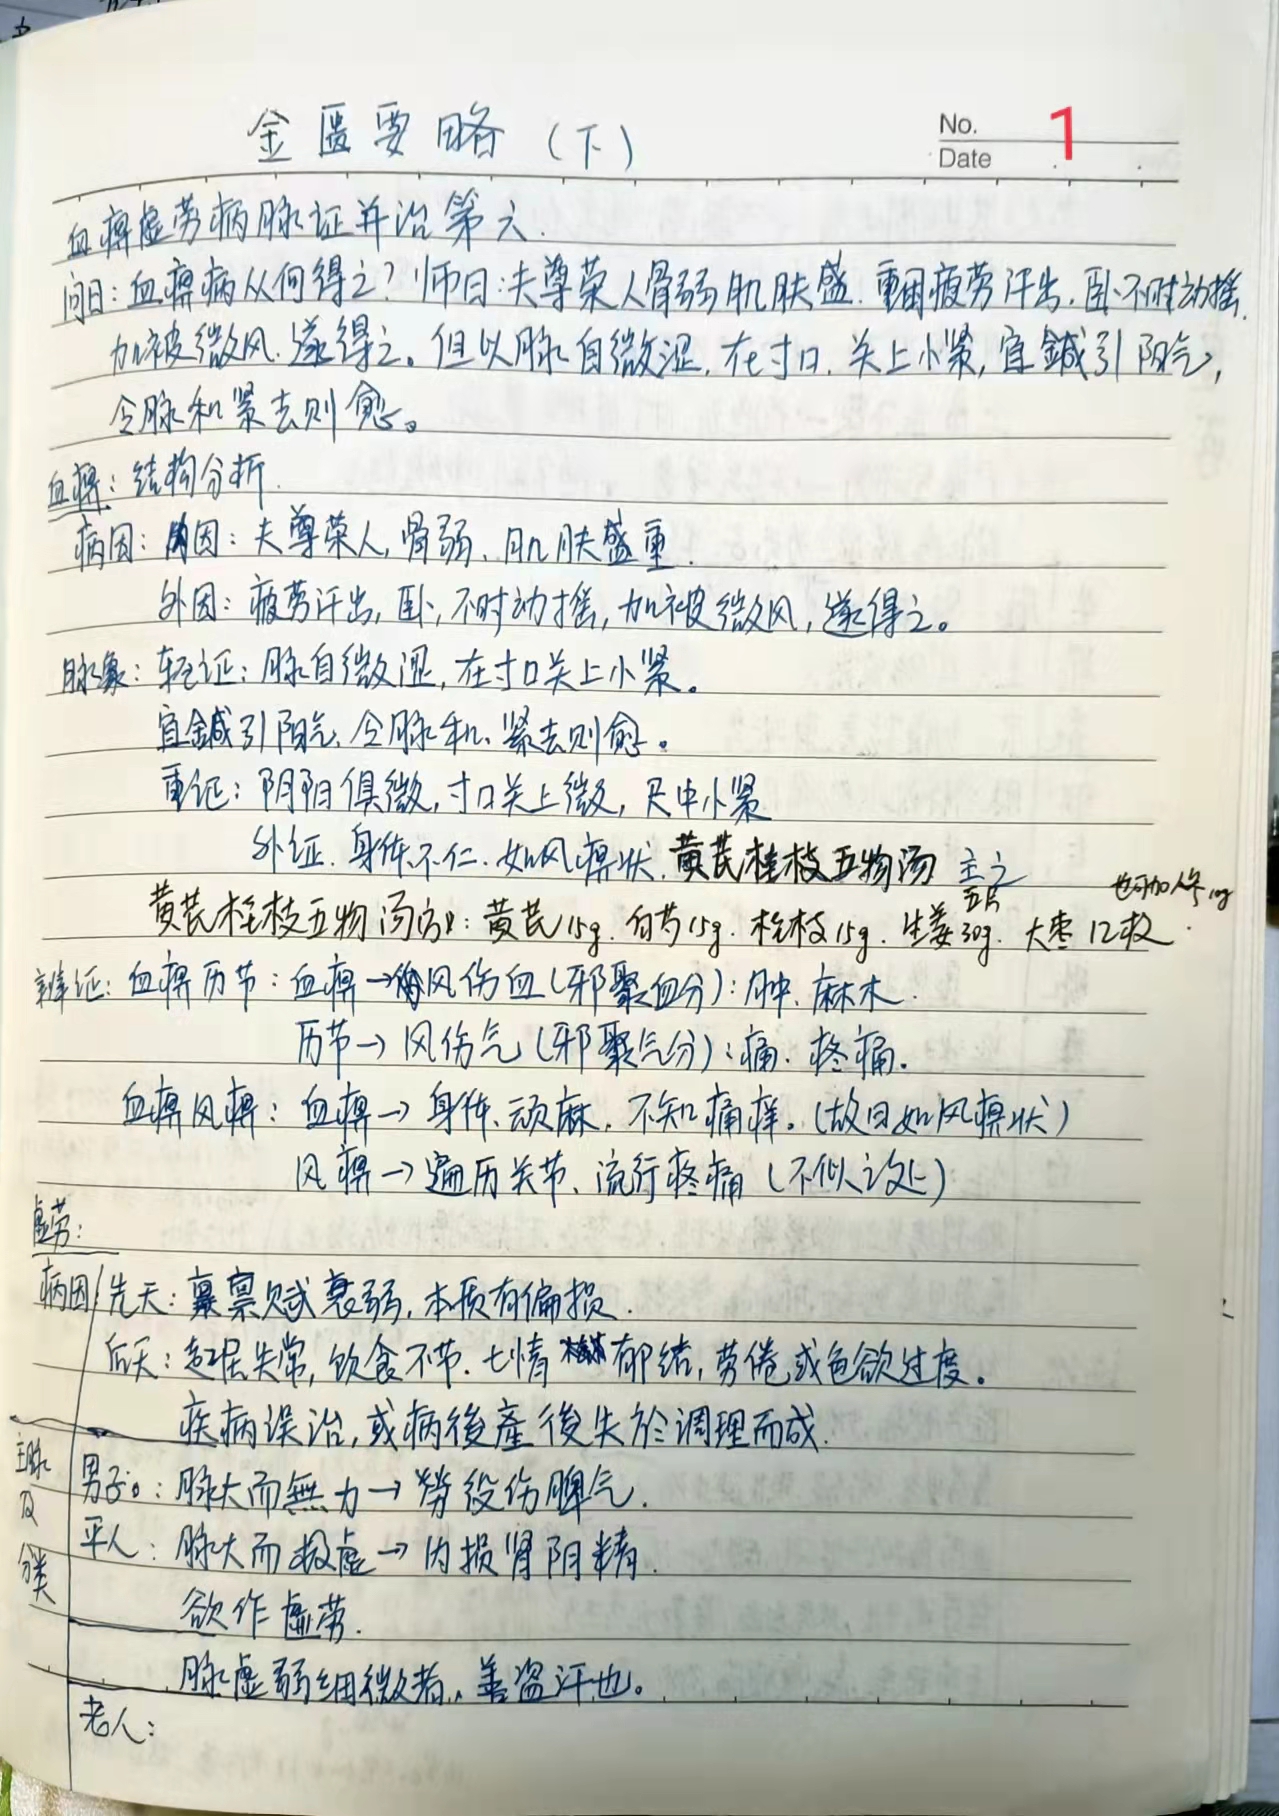 金匮要略(下)
No. 1
Date
血痹虚劳病脉证并治第六.
问曰:血痹病从何得之?师曰:夫尊荣人骨弱肌肤盛.重困疲劳汗出.卧不时动摇.
加被微风.遂得之。但以脉自微涩,在寸口.关上小紧,宜鍼引阳气,
令脉和紧去则愈。
血痹:结构分析.
病因:内因:夫尊荣人,骨弱、肌肤盛重.
外因:疲劳汗出,卧,不时动摇,加被微风,遂得之。
脉象:轻证:脉自微涩,在寸口关上小紧。
宜鍼引阳气,令脉和、紧去则愈。
重证:阴阳俱微,寸口关上微,尺中小紧
外证.身体不仁.如风痹状.黄芪桂枝五物汤 主之
五片 也可加人参10g
黄芪桂枝五物汤方:黄芪15g.白芍15g.桂枝15g.生姜30g.大枣12枚.
辨证:血痹历节:血痹→风伤血(邪聚血分):肿.麻木.
历节→风伤气(邪聚气分):痛.疼痛.
血痹风痹:血痹→身体、顽麻.不知痛痒。(故曰如风痹状)
风痹→遍历关节、流行疼痛(不似之处)
虚劳:
病因 先天:禀赋衰弱,本质有偏损.
后天:起居失常,饮食不节.七情郁结,劳倦或色欲过度。
疾病误治,或病後產後失於调理而成.
主脉及分类 男子:脉大而無力→劳役伤脾气.
平人:脉大而极虚→内损肾阴精.
欲作虚劳.
脉虚弱细微者、善盗汗也。
老人: